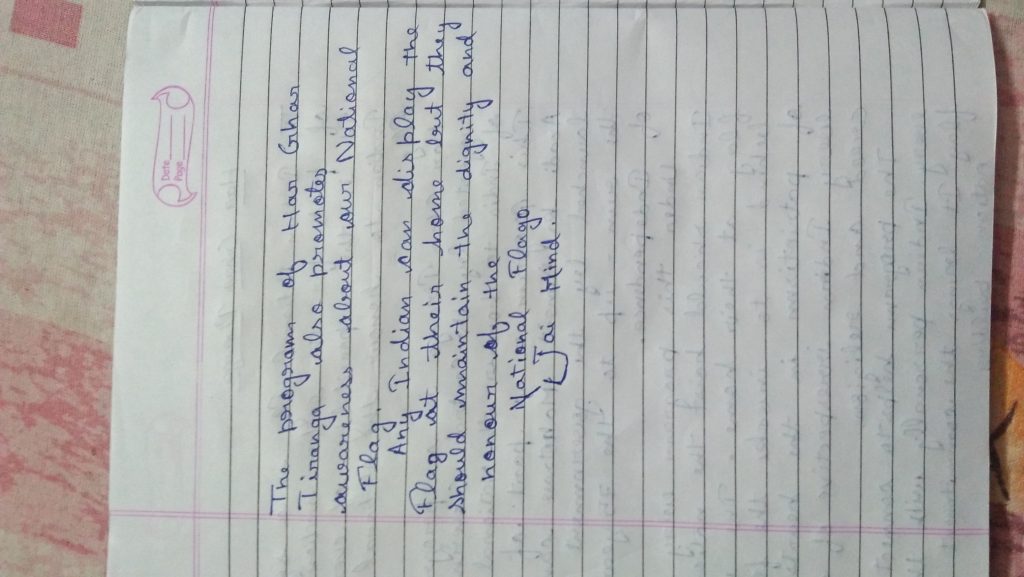 Date
Page
The program of Har Ghar
Tiranga also promotes
awareness about our National
Flag.
Any Indian can display the
Flag at their home but they
should maintain the dignity and
honour of the
National Flag.
Jai Hind..